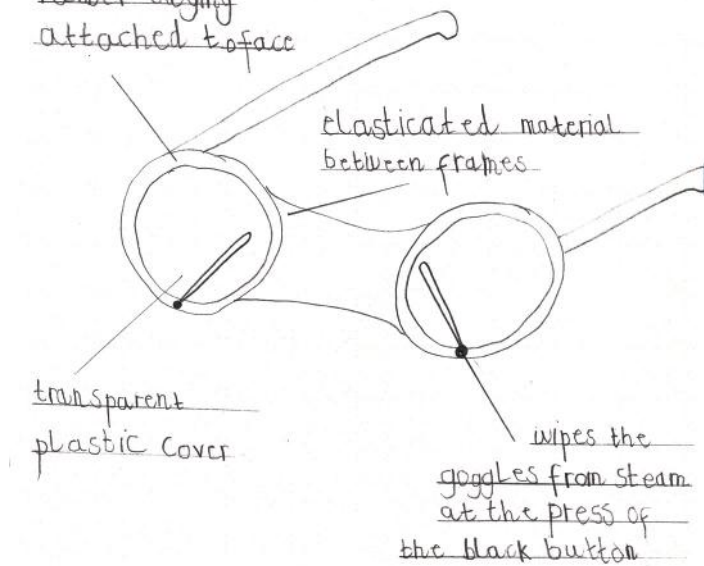 attached to face
elasticated material
between frames
transparent
plastic cover
wipes the
goggles from steam
at the press of
the black button